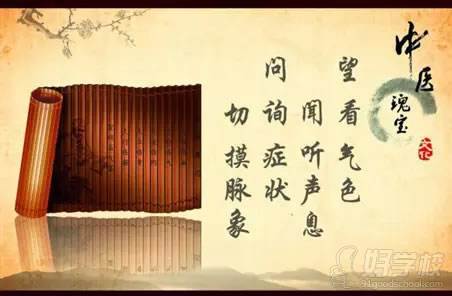 中医
瑰宝
文化
望看气色
闻听声息
问询症状
切摸脉象
好学校
91goodschool.com